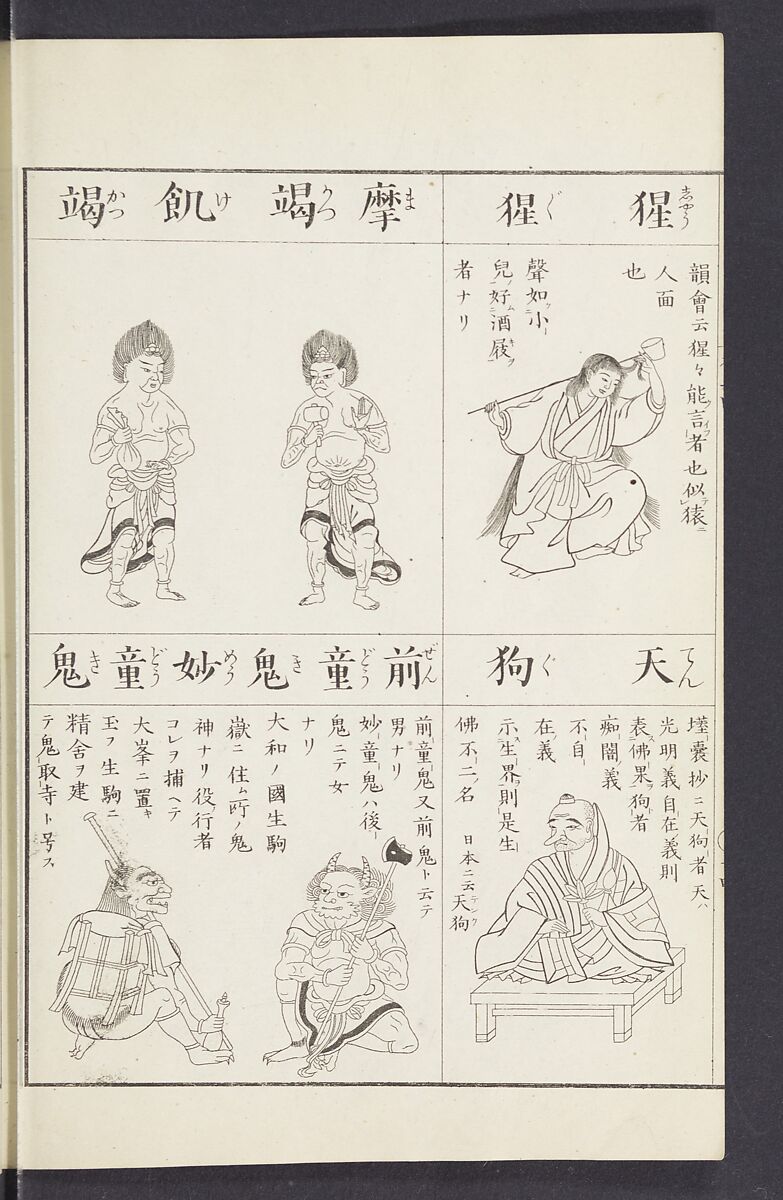 猩猩
韻會云猩々能言者也似猿
人面
也
聲如小
兒好酒屐
者ナリ
摩竭 飢竭
ま かつ け かつ
天狗
てん ぐ
壒囊抄ニ天狗者天ハ
光明義自在義則
表佛果狗者
痴闇義
不自
在義
示生界則是生
佛不二名 日本ニ云天狗
テング
前童鬼 妙童鬼
ぜん どう き めう どう き
前童鬼又前鬼ト云テ
男ナリ
妙童鬼ハ後
鬼ニテ女
ナリ
大和ノ國生駒
嶽ニ住ム所ノ鬼
神ナリ役行者
コレヲ捕ヘテ
大峯ニ置キ
玉フ生駒ニ
精舍ヲ建
テ鬼取寺ト号ス